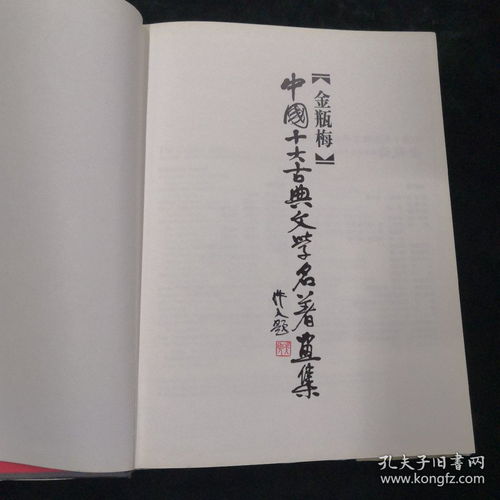 【金瓶梅】
中國十大古典文学名著畫集
作人题
孔夫子旧书网
www.kongfz.com